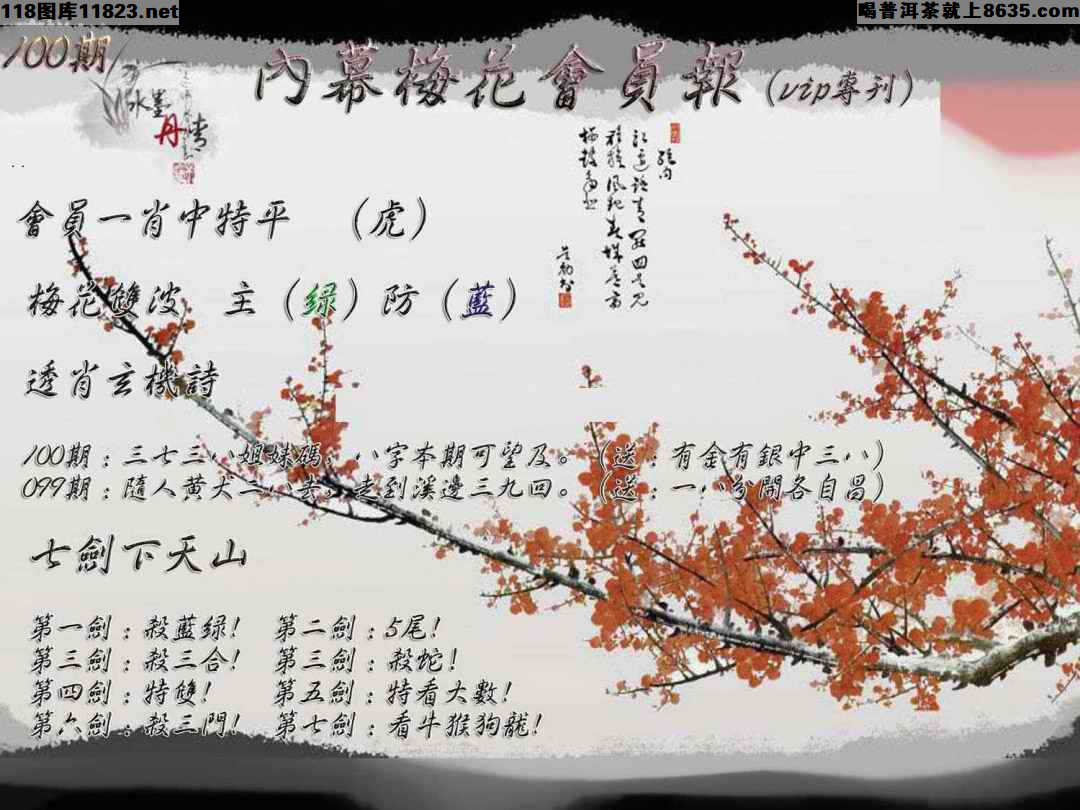 118图库11823.net
喝普洱茶就上8635.com
100期
內幕梅花會員報(vip專刊)
水墨
丹青
會員一肖中特平 （虎）
梅花雙波 主（綠）防（藍）
透肖玄機詩
100期：三七三八姐妹碼，八字本期可望及。（送：有金有銀中三八）
099期：隨人黄犬二八去，走到溪邊三九四。（送：一八分開各自昌）
七劍下天山
第一劍：殺藍緑! 第二劍：5尾!
第三劍：殺三合! 第三劍：殺蛇!
第四劍：特雙! 第五劍：特看大數!
第六劍：殺三門! 第七劍：看牛猴狗龍!